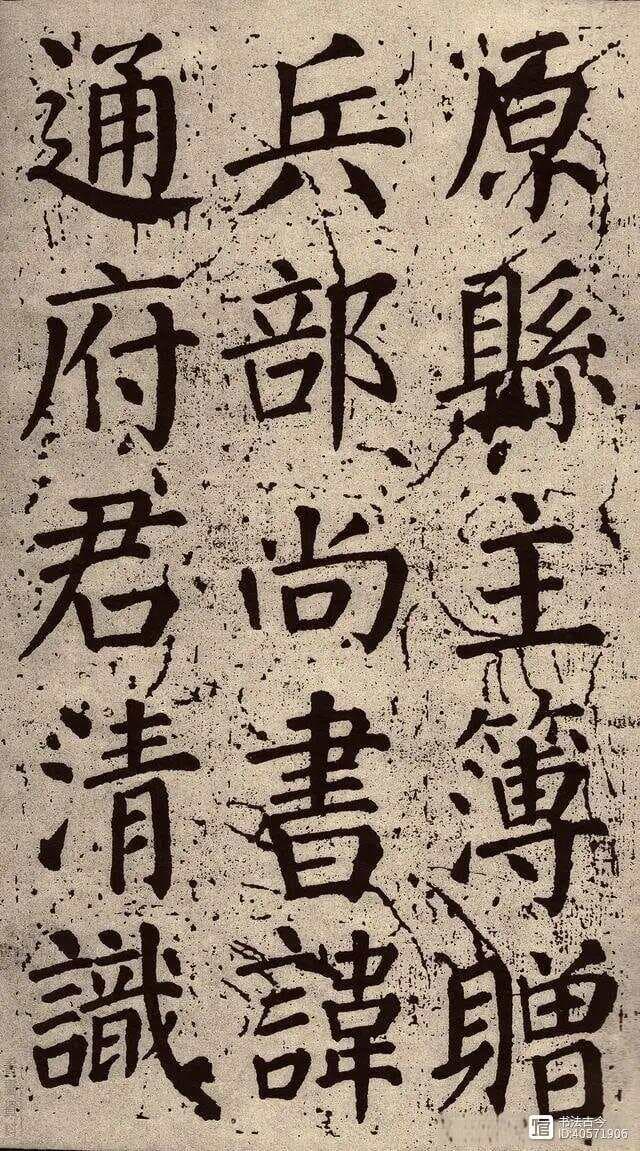 原縣主簿贈
兵部尚書諱
通府君清識
书法古今
ID:40571906